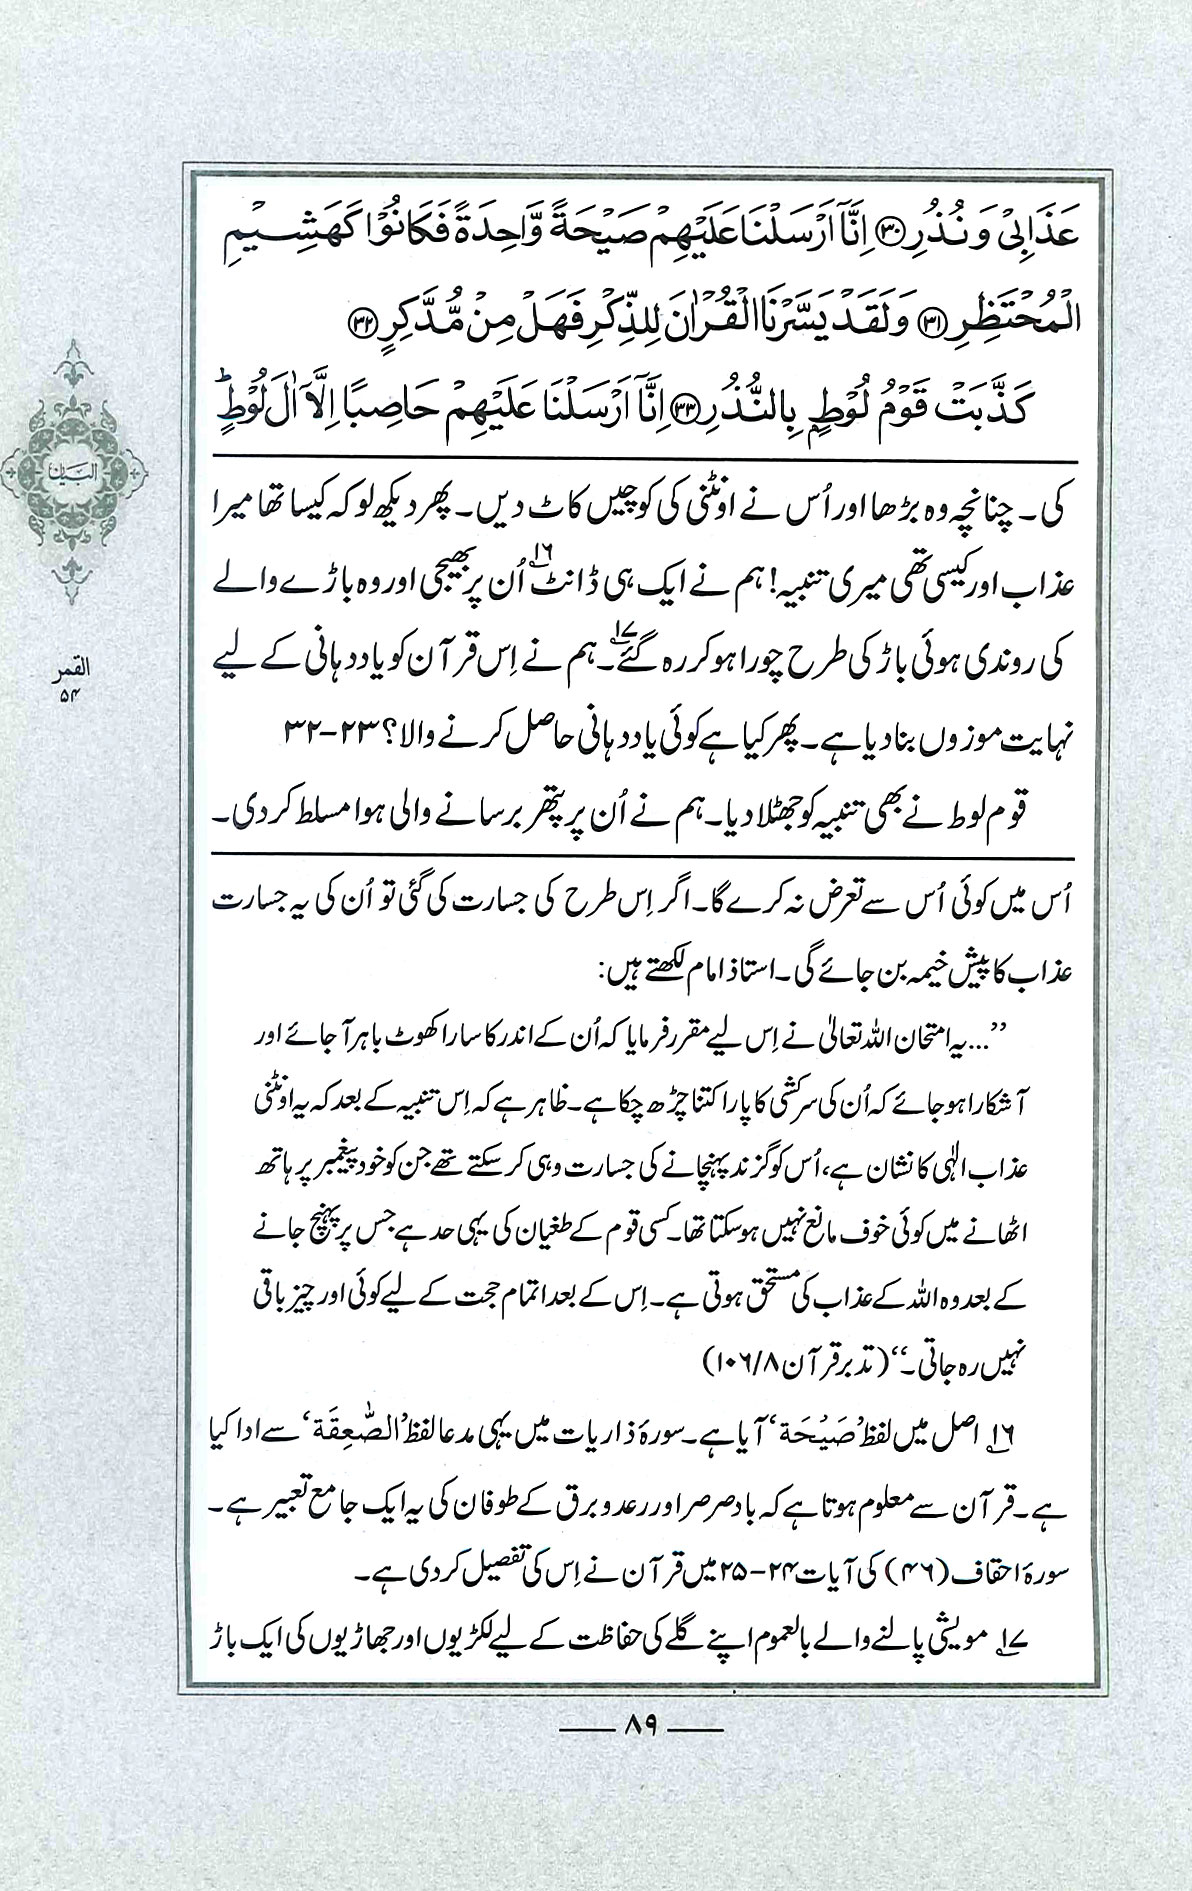 عَذَابِیْ وَنُذُرِ ﴿۳۰﴾ اِنَّآ اَرْسَلْنَا عَلَیْهِمْ صَیْحَةً وَّاحِدَةً فَكَانُوْا كَهَشِیْمِ
الْمُحْتَظِرِ ﴿۳۱﴾ وَلَقَدْ یَسَّرْنَا الْقُرْاٰنَ لِلذِّكْرِ فَهَلْ مِنْ مُّدَّكِرٍ ﴿۳۲﴾
كَذَّبَتْ قَوْمُ لُوْطٍۭ بِالنُّذُرِ ﴿۳۳﴾ اِنَّآ اَرْسَلْنَا عَلَیْهِمْ حَاصِبًا اِلَّآ اٰلَ لُوْطٍؕ
کی۔ چنانچہ وہ بڑھا اور اُس نے اونٹنی کی کوچیں کاٹ دیں۔ پھر دیکھ لو کہ کیسا تھا میرا
عذاب اور کیسی تھی میری تنبیہ! ہم نے ایک ہی ڈانٹ۱۶ اُن پر بھیجی اور وہ باڑے والے
کی روندی ہوئی باڑ کی طرح چورا ہو کر رہ گئے۱۷۔ ہم نے اِس قرآن کو یاددہانی کے لیے
نہایت موزوں بنا دیا ہے۔ پھر کیا ہے کوئی یاددہانی حاصل کرنے والا؟ ۲۳-۳۲
قوم لوط نے بھی تنبیہ کو جھٹلا دیا۔ ہم نے اُن پر پتھر برسانے والی ہوا مسلط کر دی۔
اُس میں کوئی اُس سے تعرض نہ کرے گا۔ اگر اِس طرح کی جسارت کی گئی تو اُن کی یہ جسارت
عذاب کا پیش خیمہ بن جائے گی۔ استاذ امام لکھتے ہیں:
”...یہ امتحان اللہ تعالیٰ نے اِس لیے مقرر فرمایا کہ اُن کے اندر کا سارا کھوٹ باہر آ جائے اور
آشکارا ہو جائے کہ اُن کی سرکشی کا پارا کتنا چڑھ چکا ہے۔ ظاہر ہے کہ اِس تنبیہ کے بعد کہ یہ اونٹنی
عذاب الٰہی کا نشان ہے، اُس کو گزند پہنچانے کی جسارت وہی کر سکتے تھے جن کو خود پیغمبر پر ہاتھ
اٹھانے میں کوئی خوف مانع نہیں ہو سکتا تھا۔ کسی قوم کے طغیان کی یہی حد ہے جس پر پہنچ جانے
کے بعد وہ اللہ کے عذاب کی مستحق ہوتی ہے۔ اِس کے بعد اتمام حجت کے لیے کوئی اور چیز باقی
نہیں رہ جاتی۔“ (تدبر قرآن ۸/ ۱۰۶)
۱۶ اصل میں لفظ ’صَیْحَة‘ آیا ہے۔ سورۂ ذاریات میں یہی مدعا لفظ ’الصّٰعِقَة‘ سے ادا کیا
ہے۔ قرآن سے معلوم ہوتا ہے کہ باد صرصر اور رعد و برق کے طوفان کی یہ ایک جامع تعبیر ہے۔
سورۂ احقاف (۴۶) کی آیات ۲۴-۲۵ میں قرآن نے اِس کی تفصیل کر دی ہے۔
۱۷ مویشی پالنے والے بالعموم اپنے گلے کی حفاظت کے لیے لکڑیوں اور جھاڑیوں کی ایک باڑ
البیان
القمر
۵۴
۸۹